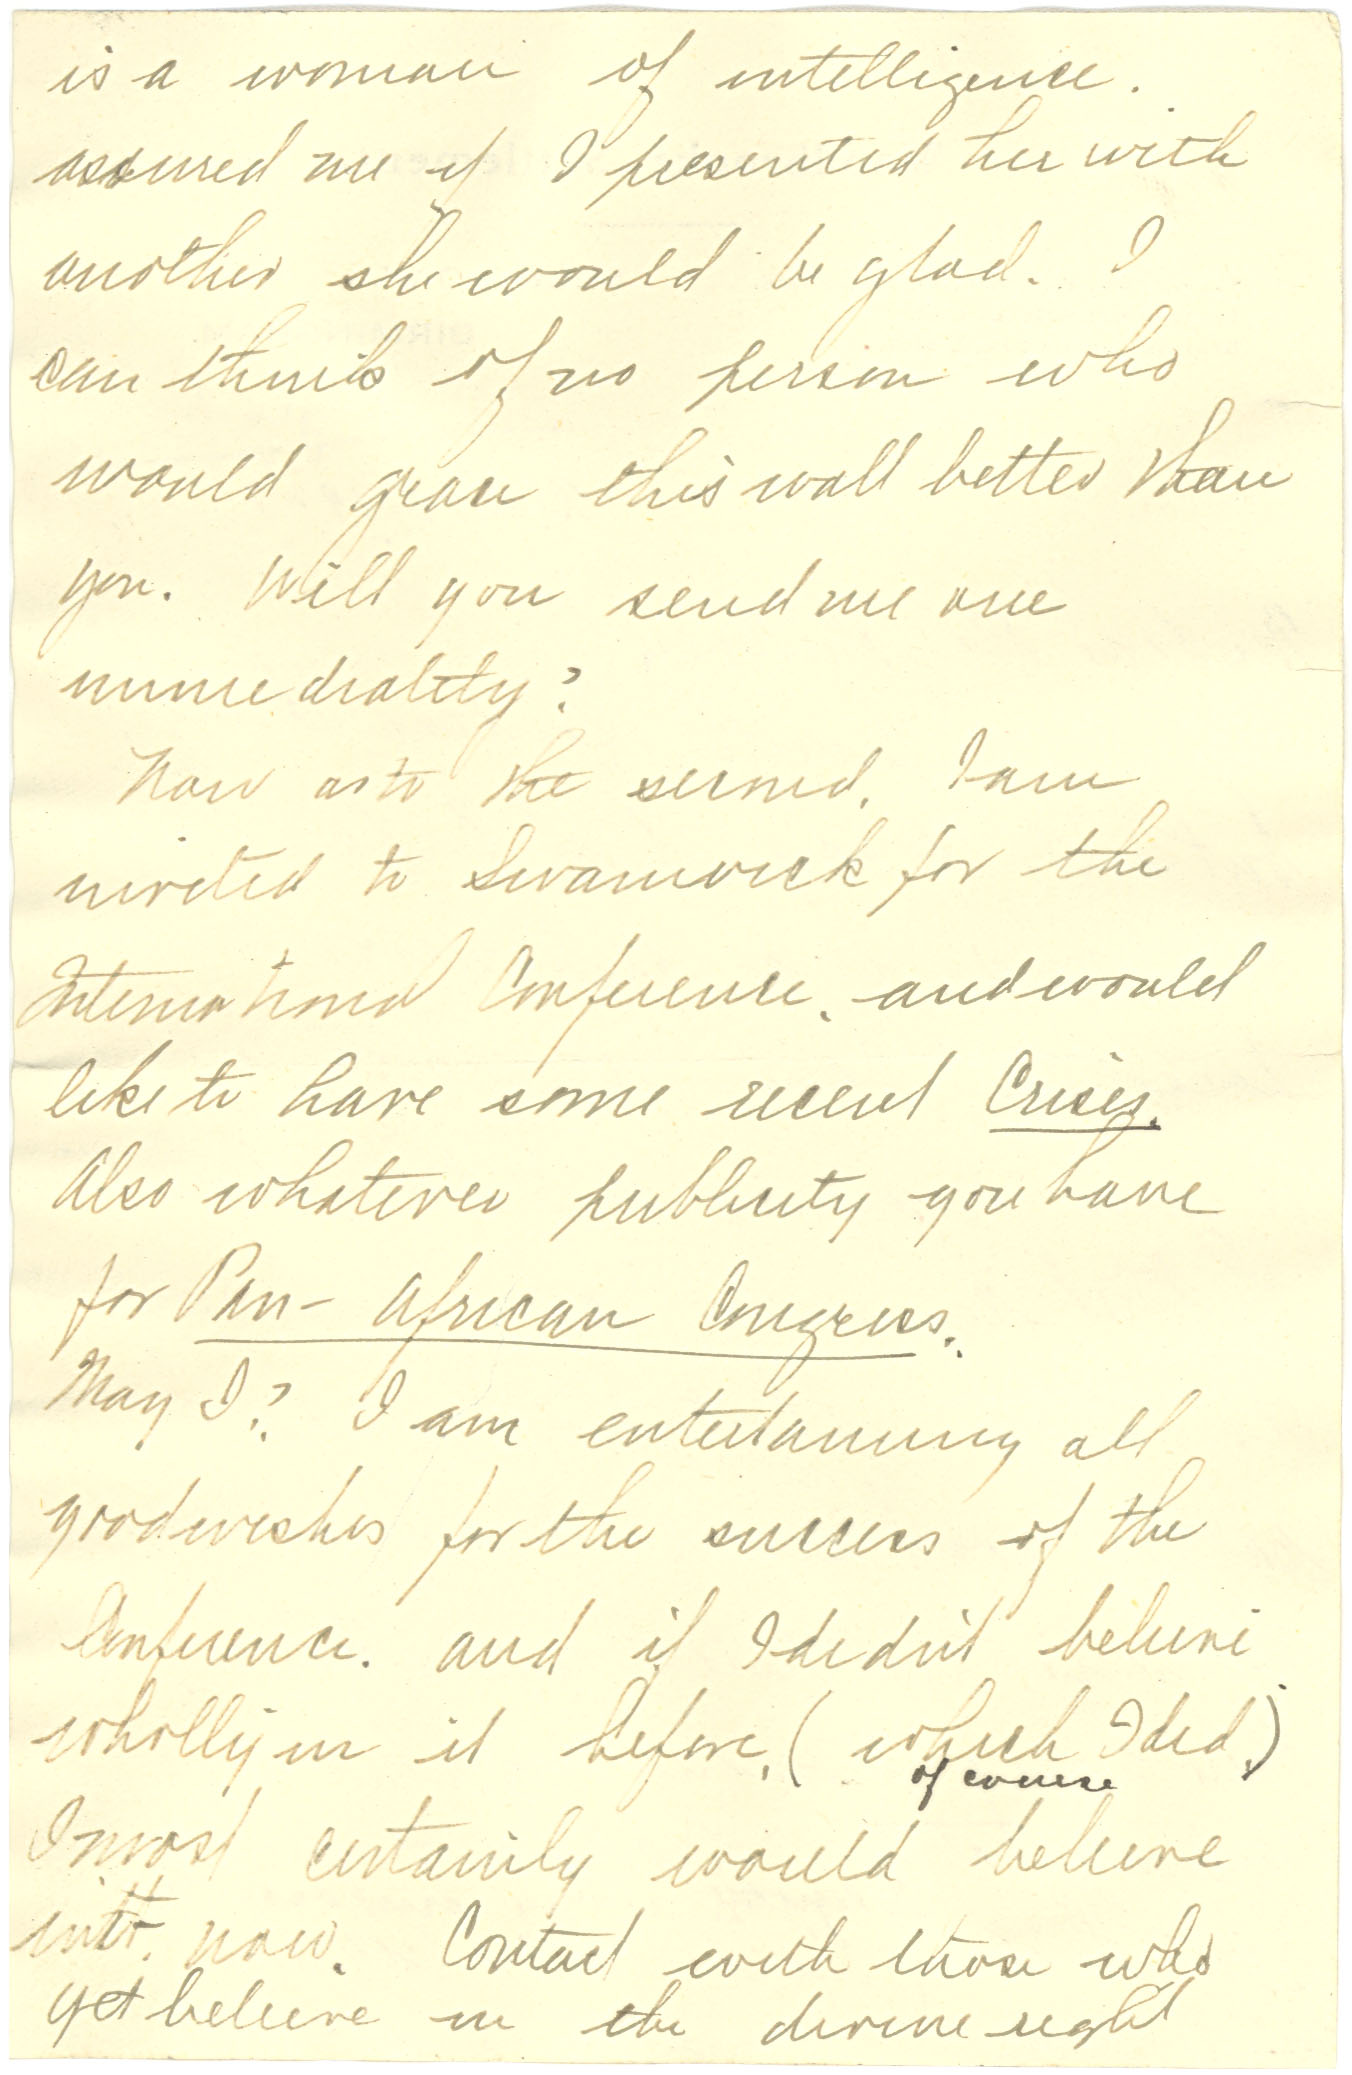 is a woman of intelligence.
assured me if I presented her with
another she would be glad. I
can think of no person who
would grace this wall better than
you. Will you send me one
immediately?
Now as to the second. I am
invited to Swanwick for the
International Conference, and would
like to have some recent Crisis.
Also whatever publicity you have
for Pan-African Congress.
May I? I am entertaining all
good wishes for the success of the
Conference. and if I didn't believe
wholly in it before, (which I did,)
of course
I most certainly would believe
in it now. Contact with those who
yet believe in the divine right